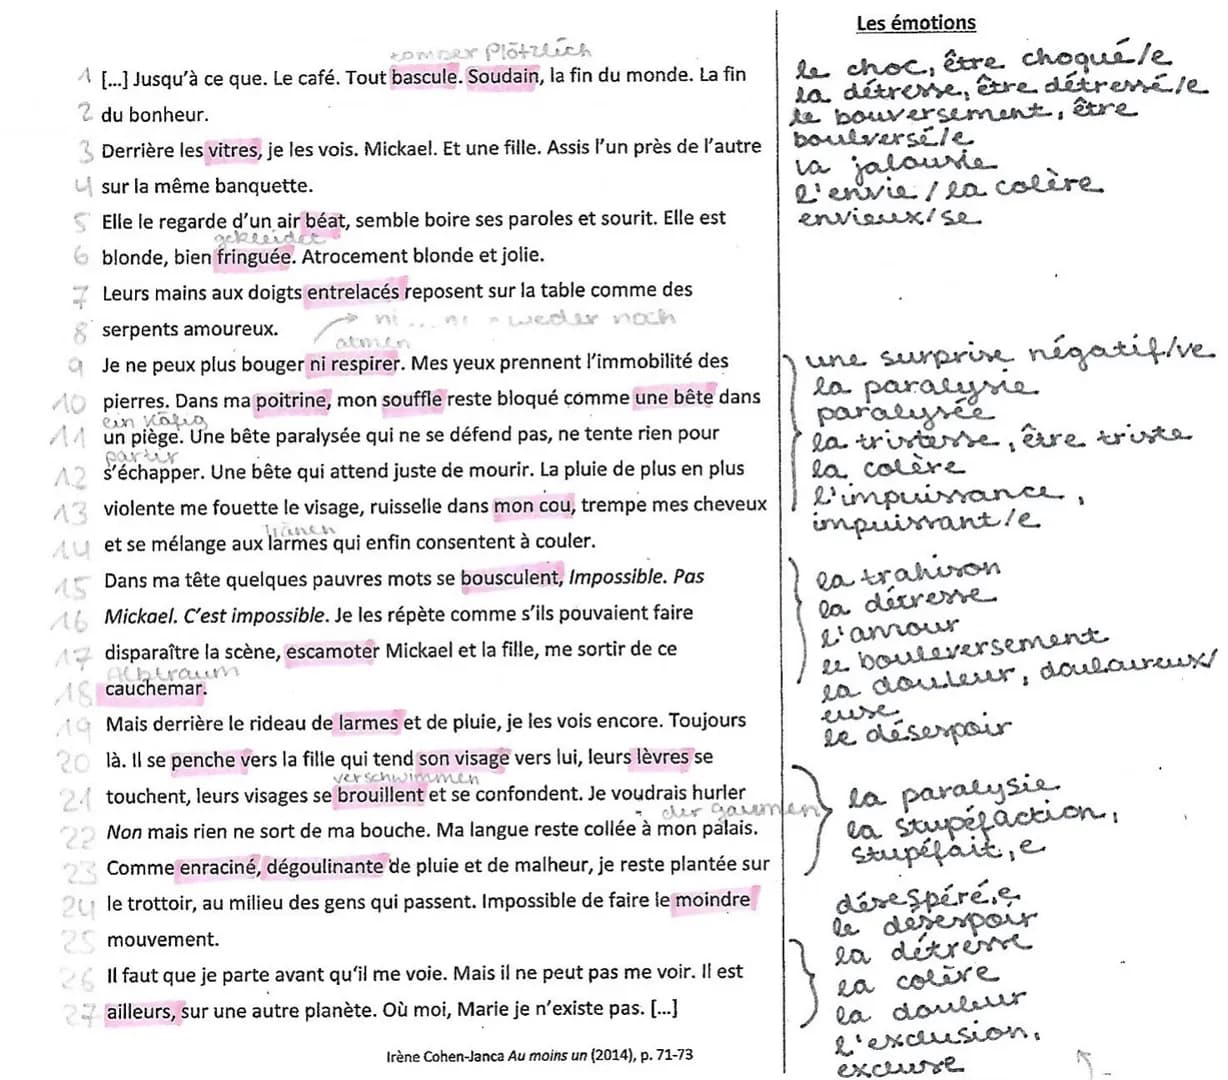 Les émotions
tomber Plötzlich
1 [...] Jusqu'à ce que. Le café. Tout bascule. Soudain, la fin du monde. La fin
2 du bonheur.
3 Derrière les vitres, je les vois. Mickael. Et une fille. Assis l'un près de l'autre
4 sur la même banquette.
5 Elle le regarde d'un air béat, semble boire ses paroles et sourit. Elle est
gekleidet
6 blonde, bien fringuée. Atrocement blonde et jolie.
7 Leurs mains aux doigts entrelacés reposent sur la table comme des
8 serpents amoureux.
ni ... ni = weder noch
atmen
9 Je ne peux plus bouger ni respirer. Mes yeux prennent l'immobilité des
10 pierres. Dans ma poitrine, mon souffle reste bloqué comme une bête dans
ein Käfig
11 un piège. Une bête paralysée qui ne se défend pas, ne tente rien pour
partir
12 s'échapper. Une bête qui attend juste de mourir. La pluie de plus en plus
13 violente me fouette le visage, ruisselle dans mon cou, trempe mes cheveux
Tränen
14 et se mélange aux larmes qui enfin consentent à couler.
15 Dans ma tête quelques pauvres mots se bousculent, Impossible. Pas
16 Mickael. C'est impossible. Je les répète comme s'ils pouvaient faire
17 disparaître la scène, escamoter Mickael et la fille, me sortir de ce
Albtraum
18 cauchemar.
19 Mais derrière le rideau de larmes et de pluie, je les vois encore. Toujours
20 là. Il se penche vers la fille qui tend son visage vers lui, leurs lèvres se
verschwimmen
21 touchent, leurs visages se brouillent et se confondent. Je voudrais hurler
der gaumen
22 Non mais rien ne sort de ma bouche. Ma langue reste collée à mon palais.
23 Comme enraciné, dégoulinante de pluie et de malheur, je reste plantée sur
24 le trottoir, au milieu des gens qui passent. Impossible de faire le moindre
25 mouvement.
26 Il faut que je parte avant qu'il me voie. Mais il ne peut pas me voir. Il est
27 ailleurs, sur une autre planète. Où moi, Marie je n'existe pas. [...]
Irène Cohen-Janca Au moins un (2014), p. 71-73
le choc, être choqué/e
la détresse, être détressé/e
le bouversement, être
boulversé/e
la jalousie
l'envie / la colère
envieux/se
une surprise négatif/ve
la paralysie
paralysée
la tristesse, être triste
la colère
l'impuissance,
impuissant/e
la trahison
la détresse
l'amour
le bouleversement
la douleur, doulaureux/
euse
le désespoir
la paralysie
la stupéfaction,
stupéfait,e
désespéré,e
le désespoir
la détresse
la colère
la douleur
l'exclusion,
excluse